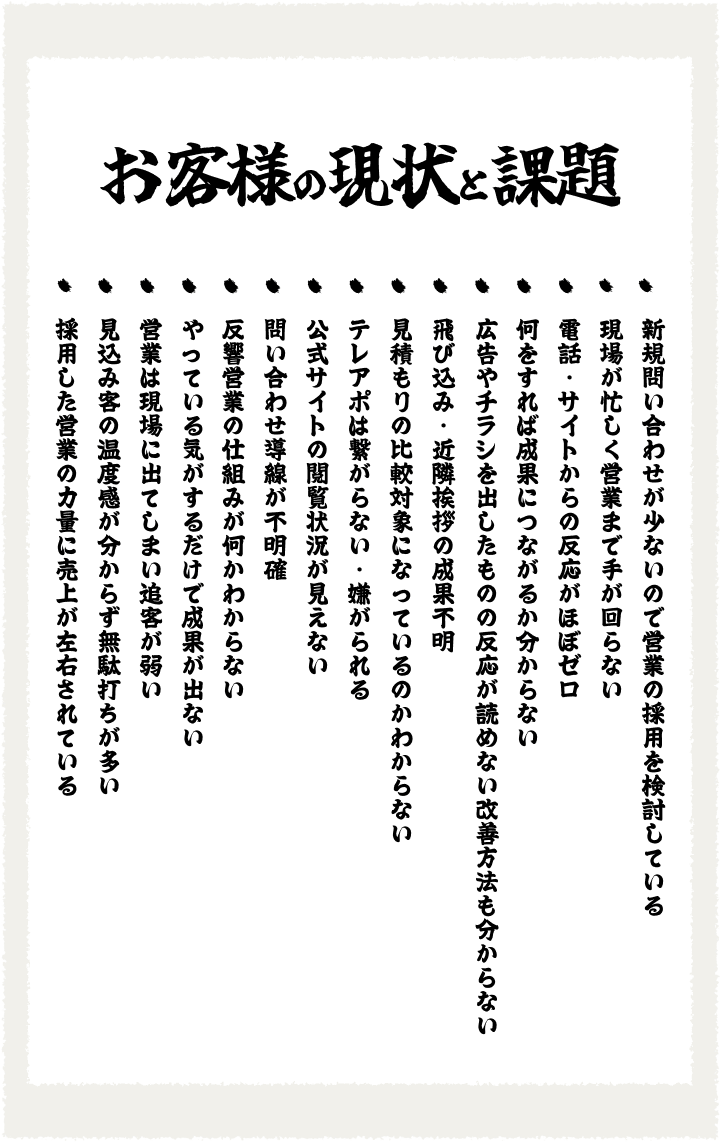 お客様の現状と課題
新規問い合わせが少ないので営業の採用を検討している
現場が忙しく営業まで手が回らない
電話・サイトからの反応がほぼゼロ
何をすれば成果につながるか分からない
広告やチラシを出したものの反応が読めない改善方法も分からない
飛び込み・近隣挨拶の成果不明
見積もりの比較対象になっているのかわからない
テレアポは繋がらない・嫌がられる
公式サイトの閲覧状況が見えない
問い合わせ導線が不明確
反響営業の仕組みが何かわからない
やっている気がするだけで成果が出ない
営業は現場に出てしまい追客が弱い
見込み客の温度感が分からず無駄打ちが多い
採用した営業の力量に売上が左右されている